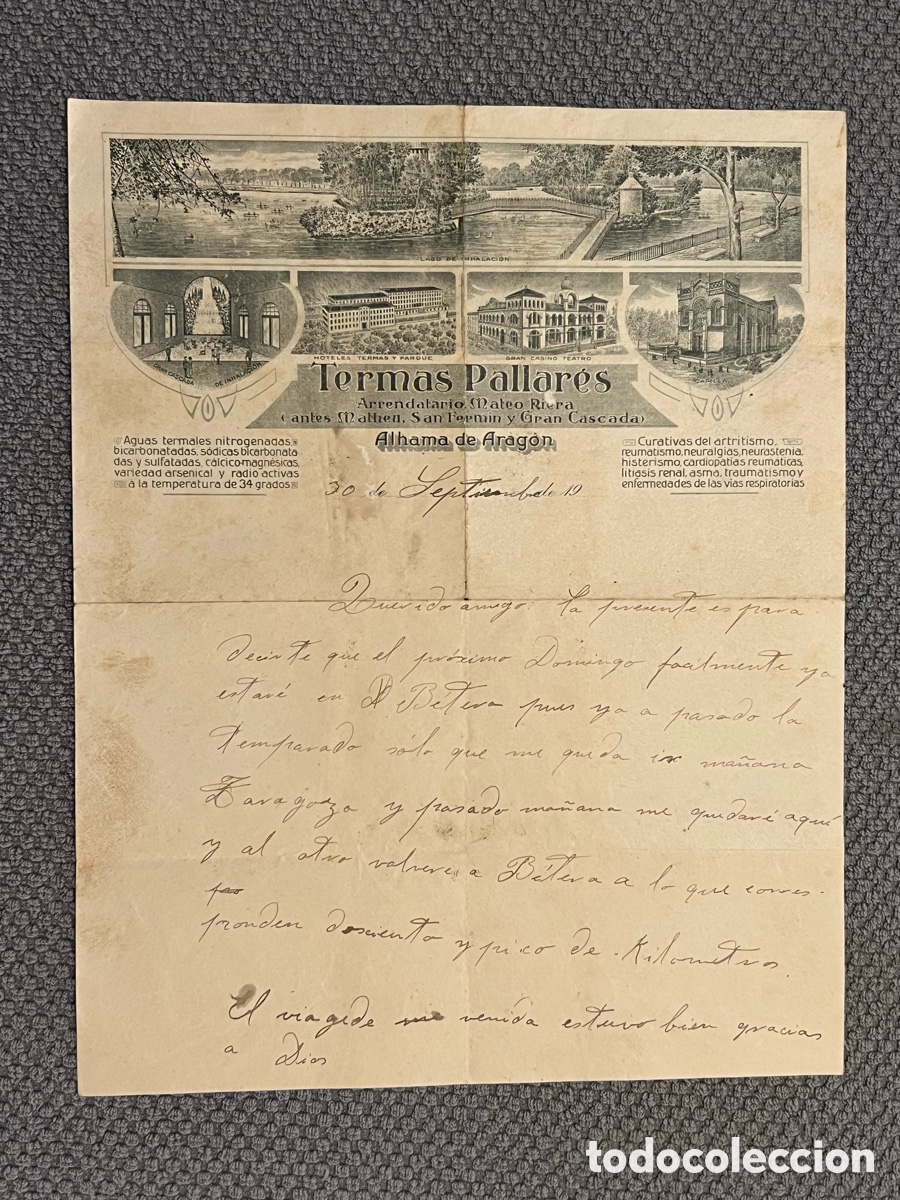 LAGO DE INHALACION
GRAN CASCADA DE INHALACION
HOTELES, TERMAS Y PARQUE
GRAN CASINO TEATRO
CAPILLA
Termas Pallarés
Arrendatario, Mateo Riera
(antes Matheu, San Fermin y Gran Cascada)
Alhama de Aragón
Aguas termales nitrogenadas,
bicarbonatadas, sódicas bicarbonata
das y sulfatadas, cálcico-magnésicas,
variedad arsenical y radio activas
á la temperatura de 34 grados
Curativas del artritismo,
reumatismo, neuralgias, neurastenia,
histerismo, cardiopatias reumaticas,
litiasis renal, asma, traumatismo y
enfermedades de las vias respiratorias
30 de Septiembre de 19
Querido amigo: la presente es para
decirte que el próximo Domingo facilmente ya
estaré en Bétera pues ya a pasado la
temparado sólo que me queda ir mañana
Zaragoza y pasado mañana me quedaré aqué
y al otro volveré a Bétera a lo que corres-
ponden doscienta y pico de Kilometros.
El viage de venida estuvo bien gracias
a Dios
todocoleccion